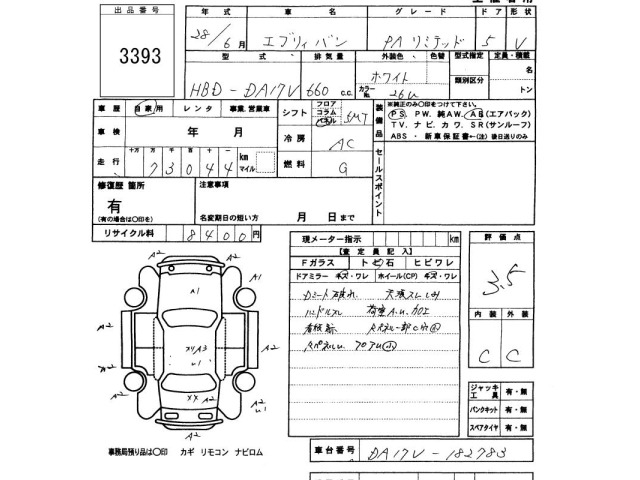 出品番号
3393
年式 車名 グレード ドア 形状
28/6月 エブリィバン PAリミテッド 5 V
型式 排気量 外装色 色替 型式指定 定員・積載
類別区分
名
トン
HBD-DA17V 660 c.c. ホワイト
カラーNo. 26U
車歴 自家用 レンタ 事業、営業車
車検 年 月
走行 十万 万 千 百 十 一
73044 km マイル
シフト フロア コラム パネル 5MT
冷房 AC
燃料 G
装備品
※純正のみ〇印をつけて下さい。
PS, PW, 純AW, AB(エアバック)
TV, ナビ, カワ, SR(サンルーフ)
ABS ・ 新車保証書←(注) 後日送りのみ
セールスポイント
修復歴 箇所
有
(有の場合は〇印を)
注意事項
名変期日の短い方 月 日まで
リサイクル料 8400円
現メーター指示 km
【査定員記入】
Fガラス トビ石 ヒビワレ
ドアミラー キズ・ワレ ホイール(CP) キズ・ワレ
評価点
3.5
内装 外装
C C
A2
A2 A1
A1
A2 A2
A3
U1
A2 A2
XX A2 U1
A2
ジャッキ工具 有・無
パンクキット 有・無
スペアタイヤ 有・無
事務局預り品は〇印 カギ リモコン ナビロム
車台番号 DA17V-182783